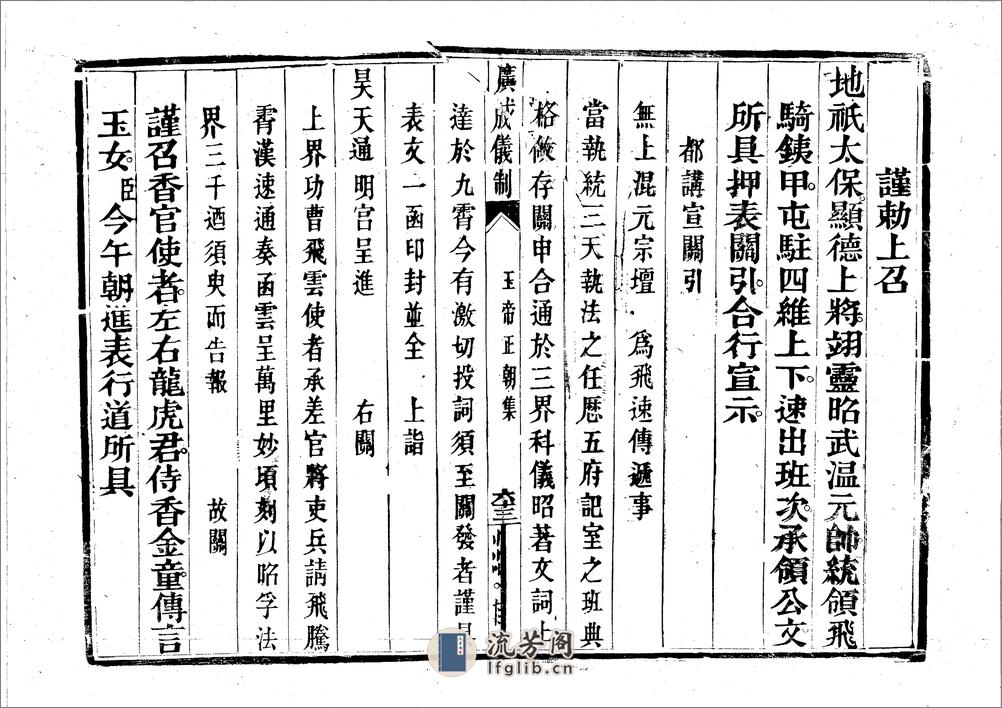 謹勅上召
地祇太保。顯德上將。翊靈昭武溫元帥。統領飛
騎銕甲。屯駐四維上下。速出班次。承領公文
所具押表關引。合行宣示。
都講宣關引
無上混元宗壇 為飛速傳遞事
當執統三天執法之任歷五府記室之班典
格倣存關申合通於三界科儀昭著文詞上
廣成儀制 玉帝正朝集
達於九霄今有激切投詞須至關發者謹具
表文一函印封並全 上詣
昊天通明宮呈進 右關
上界功曹飛雲使者承差官將吏兵請飛騰
霄漢速通奏函雲呈萬里妙頃刻以昭孚法
界三千迺須臾而告報 故關
謹召香官使者。左右龍虎君。侍香金童。傳言
玉女。臣今午朝進表行道所具
流芳阁
lfglib.cn